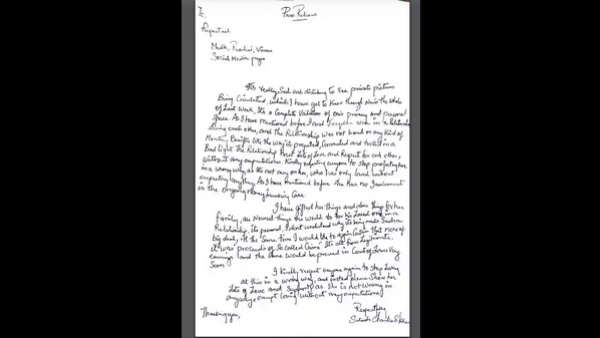 To,
Press Release
Respected
Media, Friends, Viewers
Social Media pages
Its really Sad and disturbing to see private pictures
Being Circulated, which I have got to know through News the whole
of Last Week, Its a Complete Violation of one's privacy and personal
space. As I have mentioned before I and were in a Relationship
each other, and the Relationship was not based on any kind of
Monetary Benefits like the way its projected, Commended and trolled in a
Bad light the Relationship Had Lots of Love and Respect for each other,
without any expectations. Kindly requesting anyone to stop projecting her
in a wrong way, as its not easy on her, who has only loved without
expecting anything. As I have mentioned before She Has no Involvement
in the ongoing Money Laundering Case.
I have gifted her things and done things for her
family, as Normal things one would do for his Loved ones in a
Relationship, Its personal, I dont understand why its being made Such a
big deal, at the Same time I would like to again Confirm that none of
it was "proceeds of So called Crime" Its all from Legitimate
earnings and the same would be proved in Court of Law Very
Soon.
I kindly request everyone again to Stop Looking
at this in a wrong way, and instead please Show her
Lots of Love and Support, as She is Not wrong in
anyway, except Loving without any expectations
Thanking you,
Respectfully
Sukash Chandra